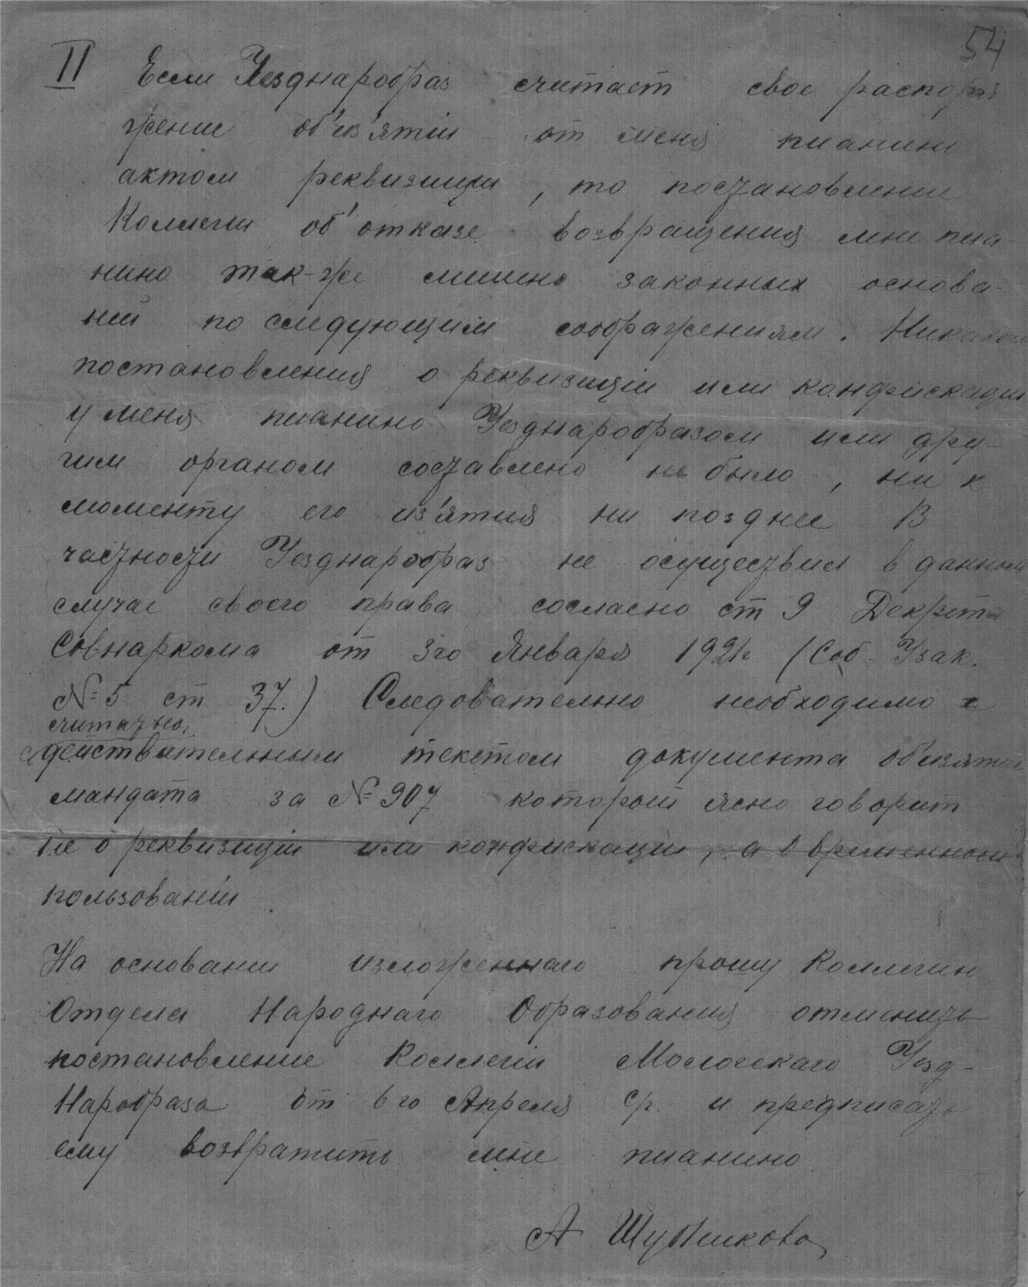 54
II Если Уезднарообраз считает свое распоря
жение об'из'ятiи от меня пианино
актом реквизиции, то постановление
Коллегiи об'отказе возвращения мне пиа-
нино так-же лишено законных основа-
нiй по следующим соображениям. Никакого
постановления о реквизицiи или конфискации
у меня пианино Уезднарообразом или дру-
гим органом составлено не было, ни к
моменту его из'ятия ни позднее В
частности Уезднарообраз не осуществил в данном
случае своего права согласно ст 9 Декрета
Совнаркома от 3го Января 1921г (Соб. Узак.
№ 5 ст 37.) Следовательно необходимо
считаться
с действительным текстом документа об'изятии
мандата за № 907 который ясно говорит
не о реквизицiи или конфискацiи, а о временном
пользованiи
На основании изложеннаго прошу Коллегию
Отдела Народнаго Образования отменить
постановление Коллегiи Мологскаго Уезд-
Нарообраза от 6го Апреля с/г. и предписать
ему возвратить мне пианино
А